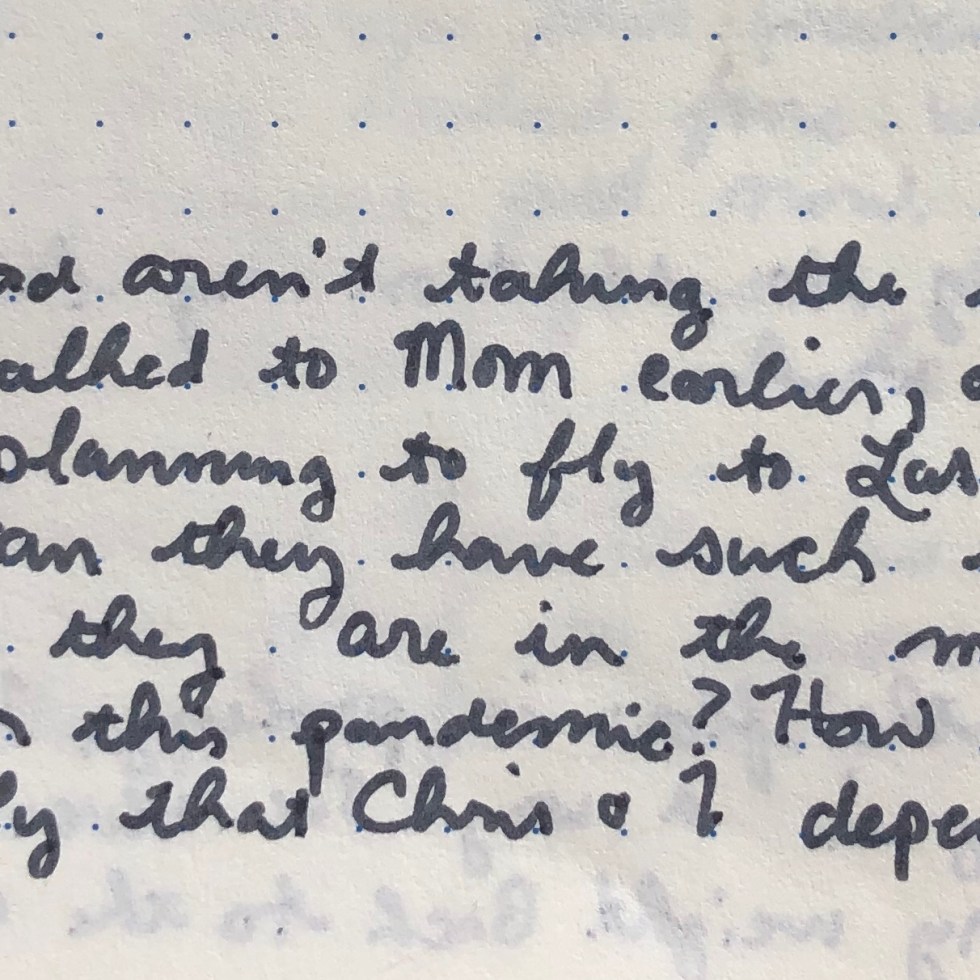 ad aren't taking the
alked to Mom earlier,
planning to fly to Las
an they have such
they are in the m
this pandemic? How
ly that Chris & I depe